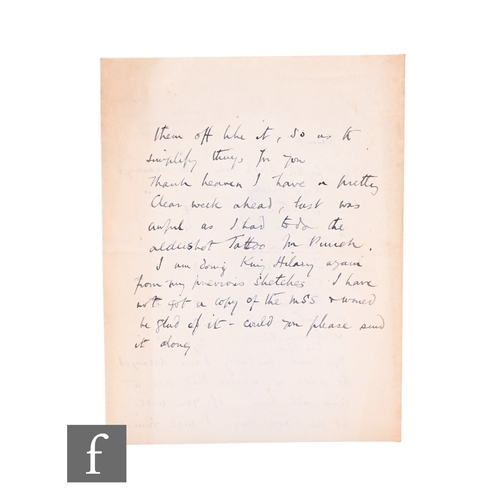 them off like it, so as to
simplify things for you
Thank heaven I have a pretty
clear week ahead, last was
awful as I had to do the
aldershot Tattoo for Punch.
I am doing King Hilary again
from my previous sketches I have
not got a copy of the MSS & would
be glad of it - could you please send
it along
f